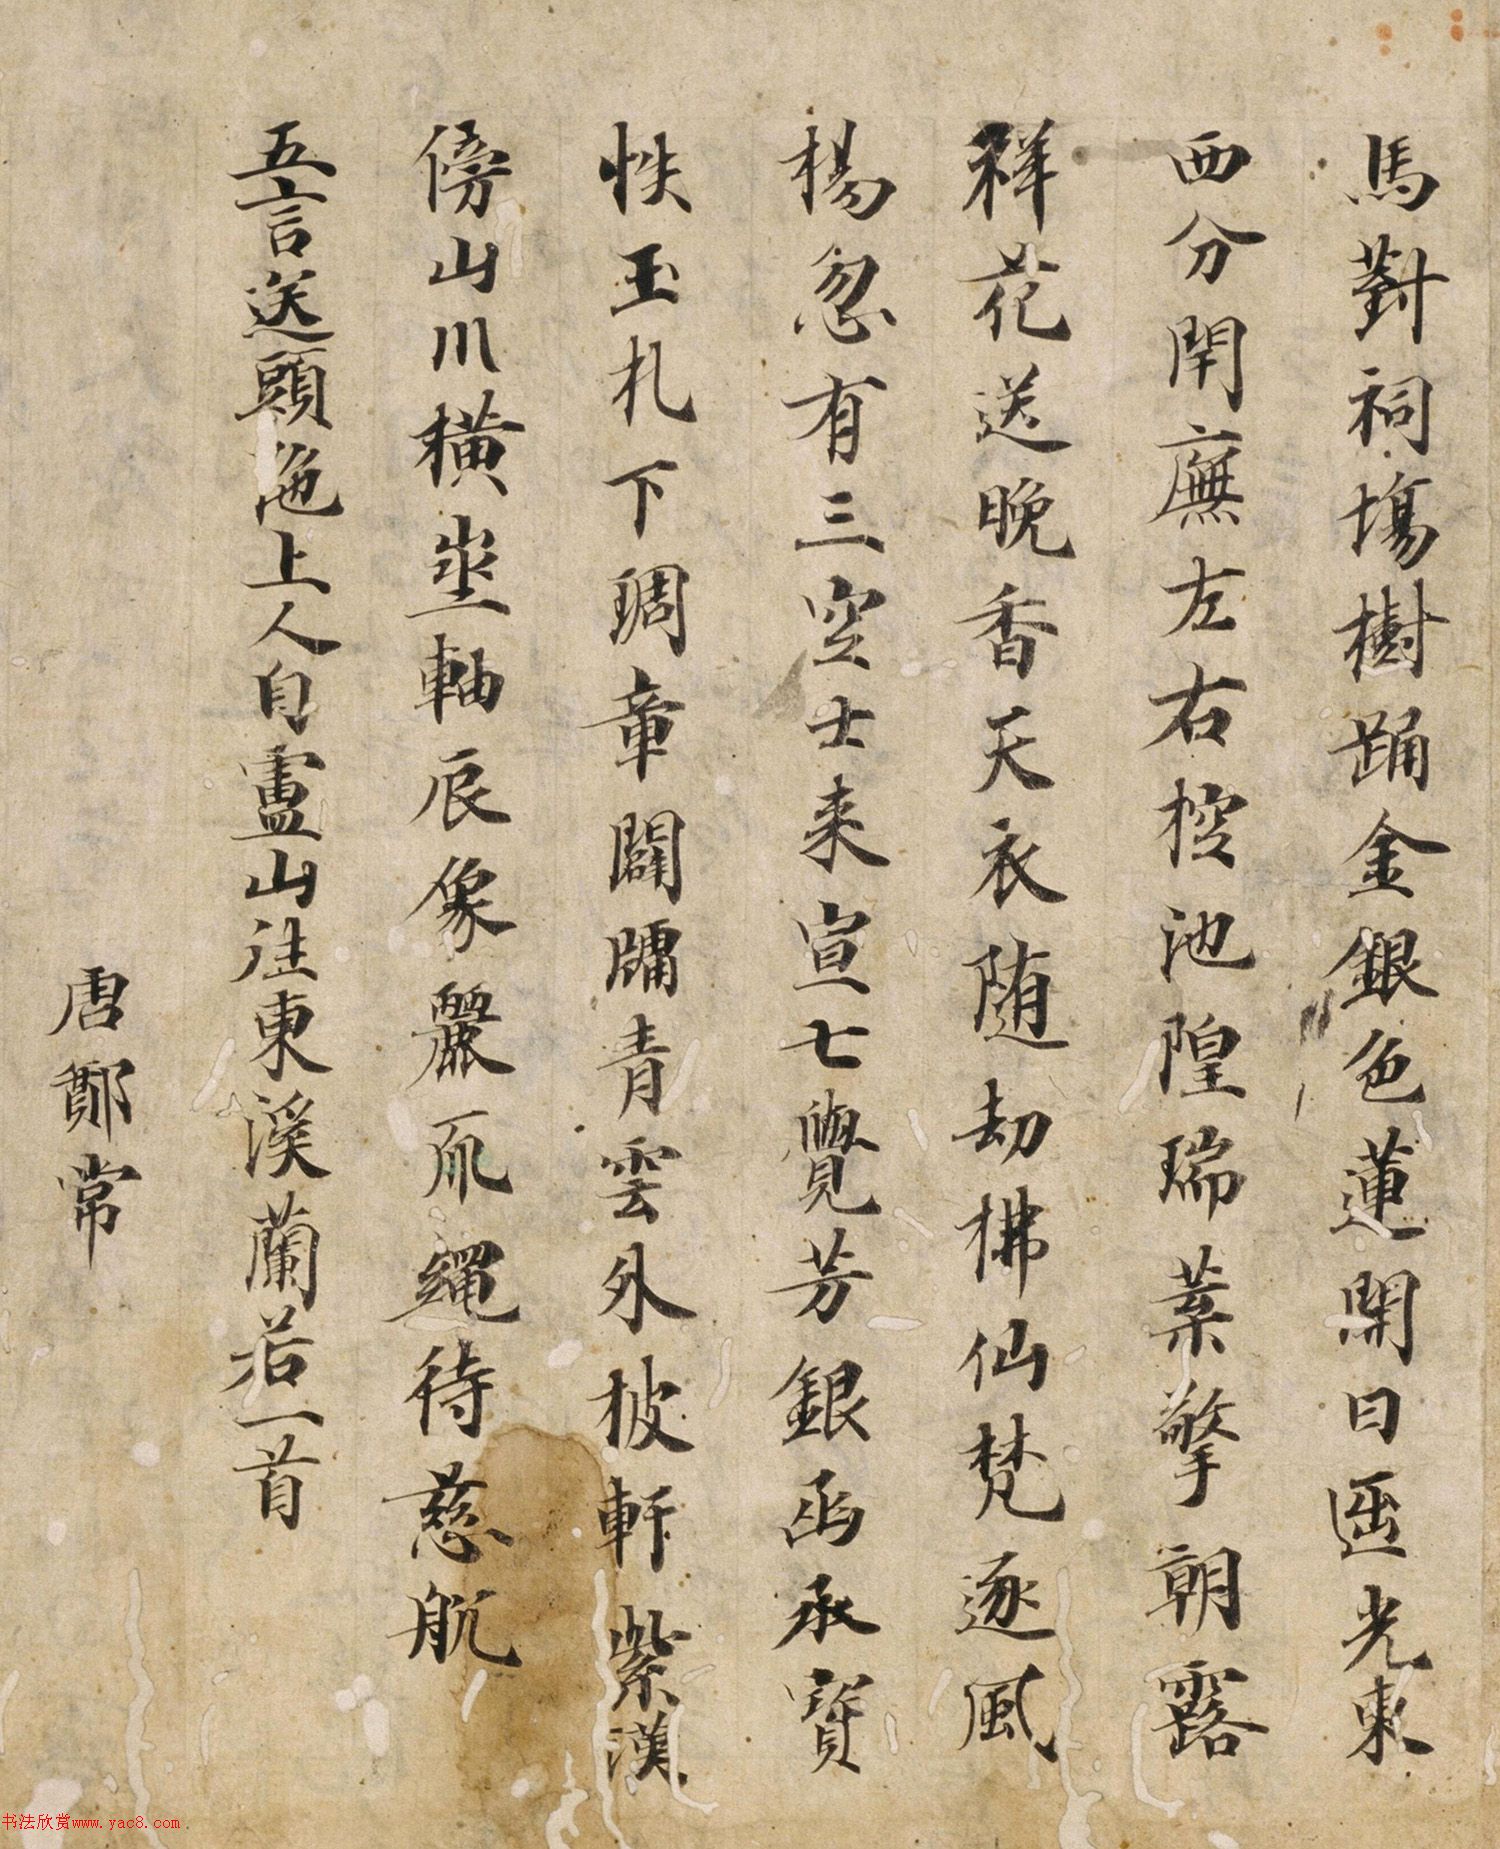 馬對祠塲樹踊金銀色蓮開日匝光東
西分閈廡左右控池隍瑞葉擎朝露
祥花送晚香天衣随劫拂仙梵逐風
楊忽有三空士来宣七覺芳銀函承寶
帙玉札下琱章闢牖青雲外披軒紫漢
傍山川横坐軸辰像麗爪繩待慈航
五言送頭陁上人自廬山往東溪蘭若一首
唐鄭常
书法欣赏www.yac8.com